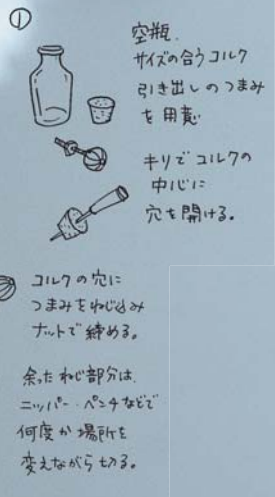 ①
空瓶.
サイズの合うコルク
引き出しのつまみ
を用意
キリでコルクの
中心に
穴を開ける。
コルクの穴に
つまみをねじ込み
ナットで締める。
余ったねじ部分は.
ニッパー・ペンチなどで
何度か場所を
変えながら切る。